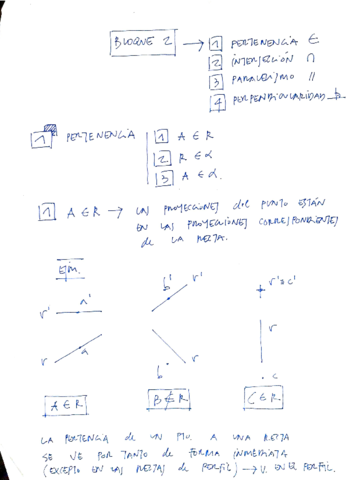 BLOQUE 2 → 1 PERTENENCIA ∈
2 INTERSECCIÓN ∩
3 PARALELISMO //
4 PERPENDICULARIDAD ⊥
1 PERTENENCIA
1 A ∈ R
2 R ∈ α
3 A ∈ α.
1 A ∈ R → LAS PROYECCIONES DEL PUNTO ESTÁN
EN LAS PROYECCIONES CORRESPONDIENTES
de LA RECTA.
EJM.
r' a'
b' r'
r' ≡ c'
r a
r
b
r
c
A ∈ R
B ∉ R
C ∈ R
LA PERTENCIA de UN PTO. A UNA RECTA
SE VE POR TANTO DE FORMA INMEDIATA
(EXCEPTO EN LAS RECTAS de PERFIL) → V. EN EL PERFIL.